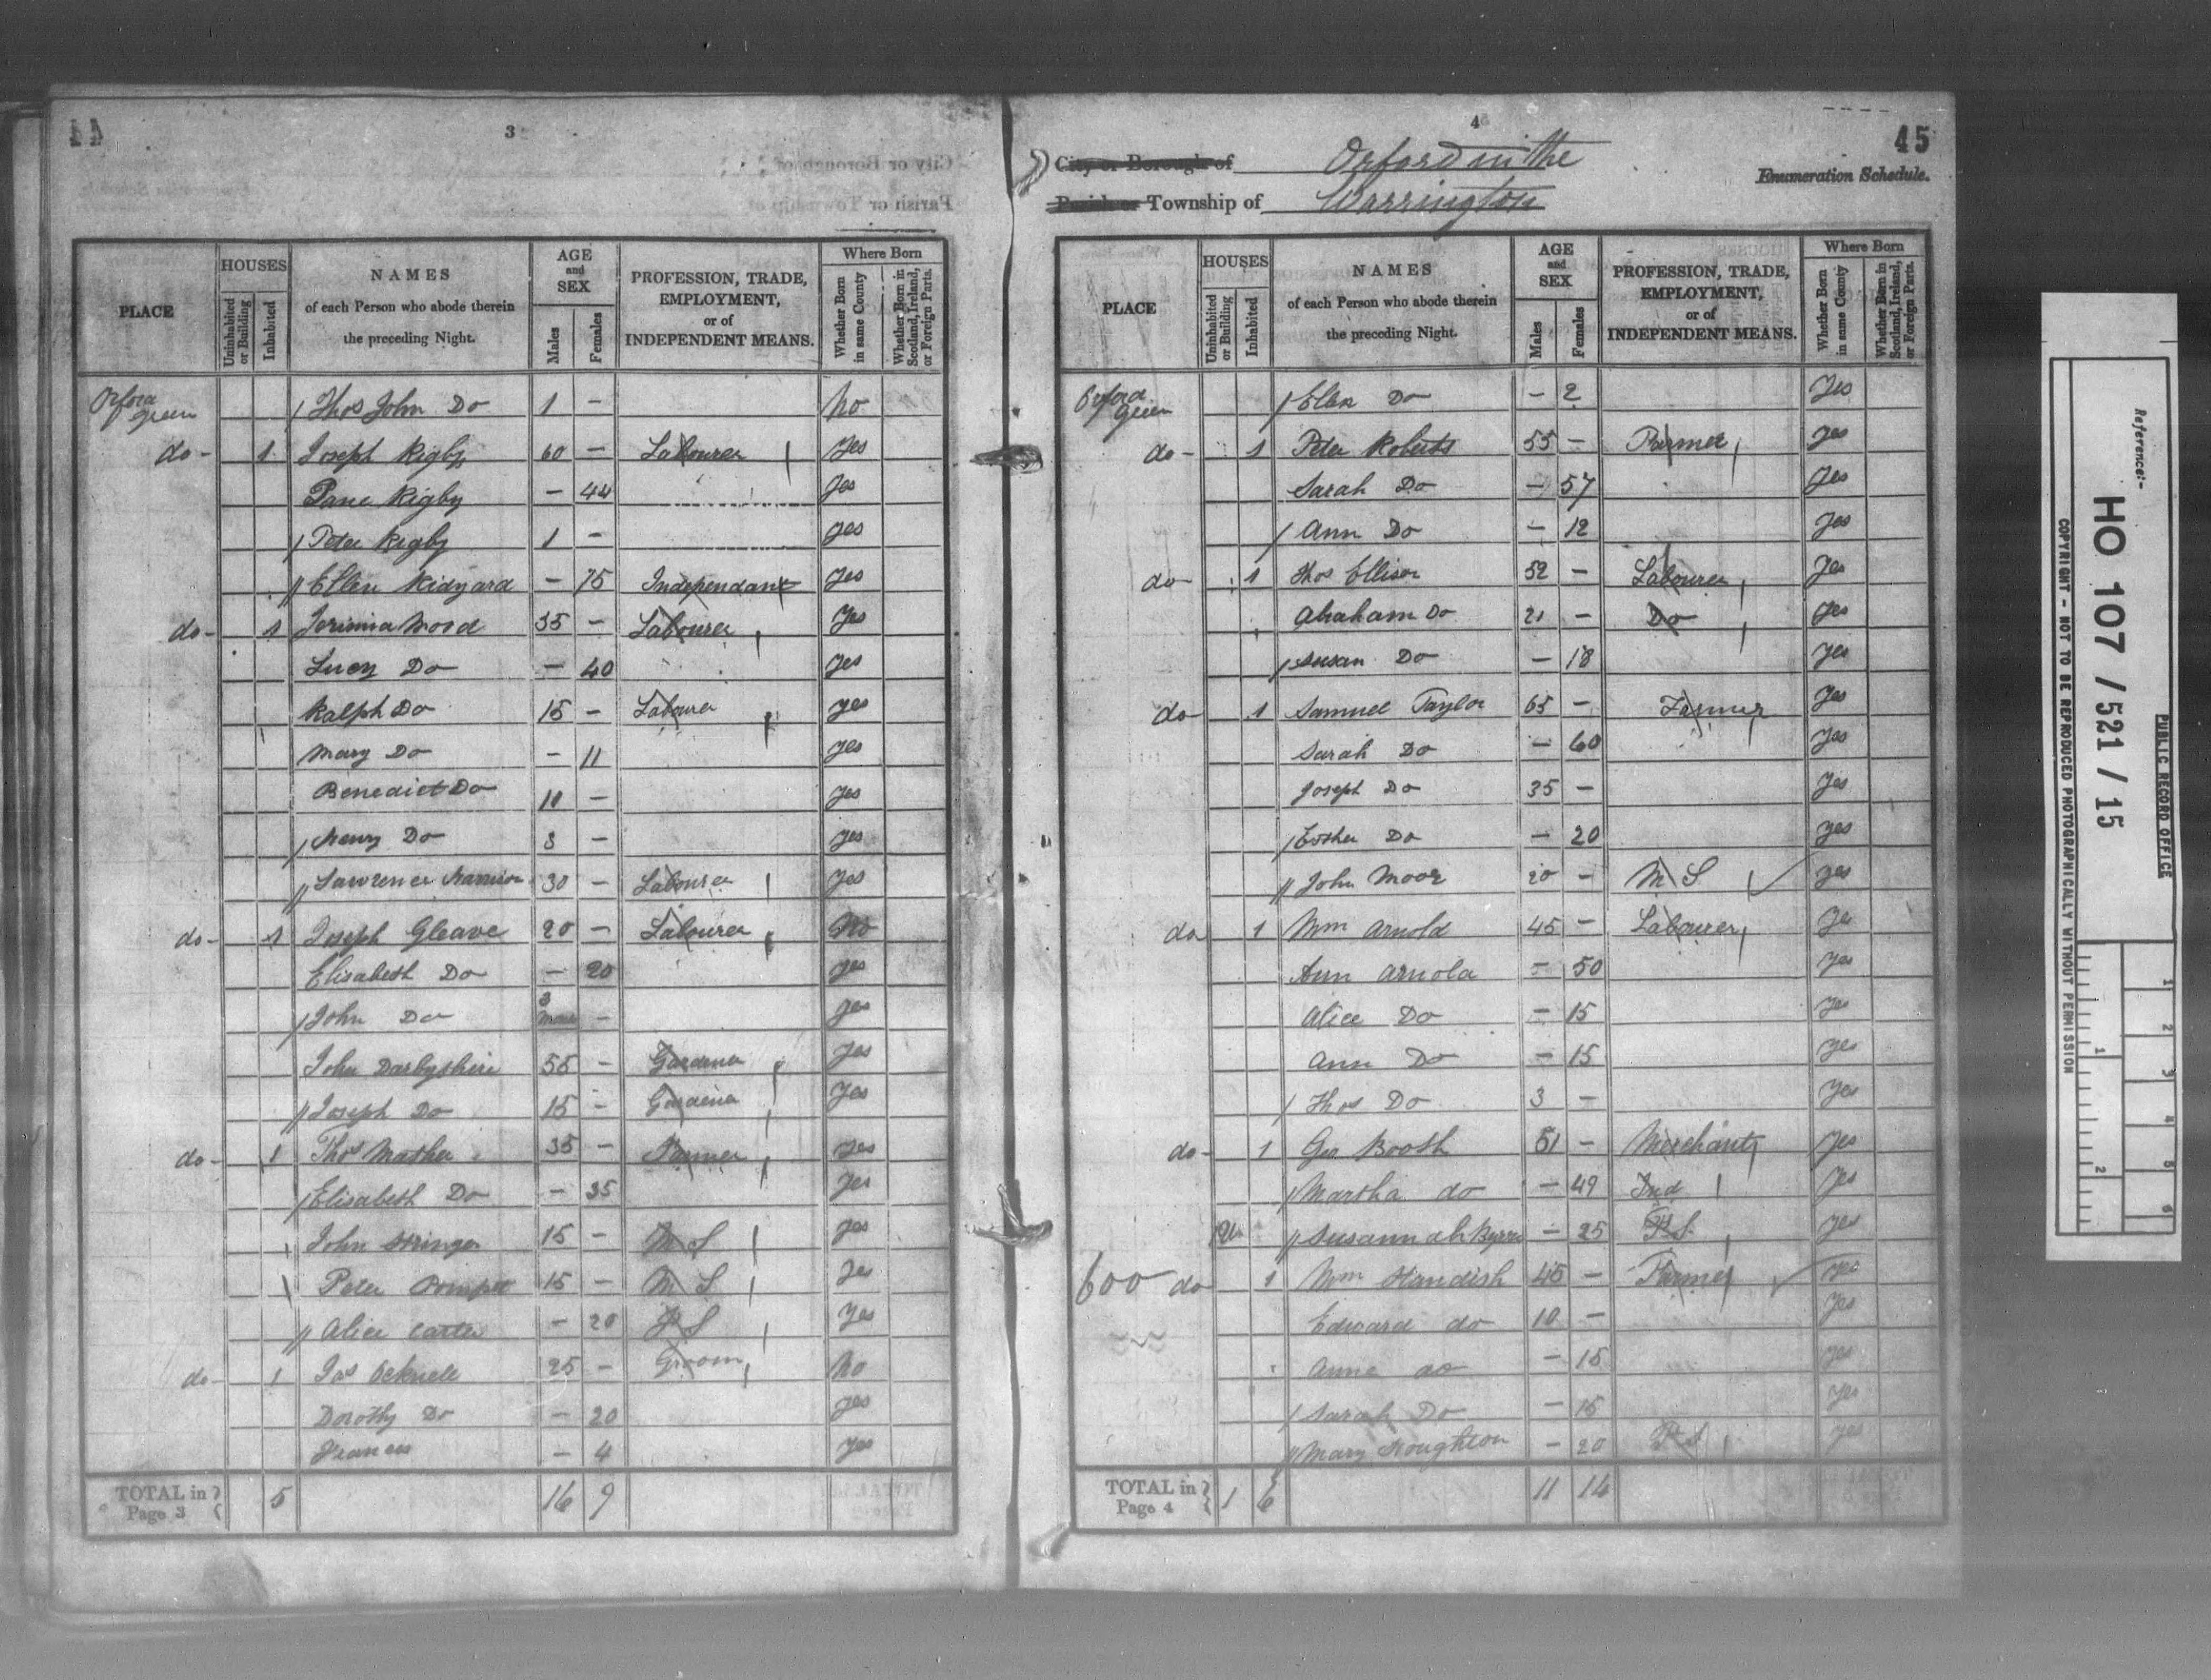 3
PLACE
HOUSES
Uninhabited or Building
Inhabited
NAMES
of each Person who abode therein
the preceding Night.
AGE
and
SEX
Males
Females
PROFESSION, TRADE,
EMPLOYMENT,
or of
INDEPENDENT MEANS.
Where Born
Whether Born in same County
Whether Born in Scotland, Ireland, or Foreign Parts.
Orford Green Thos John Do 1 - No
do - 1 Joseph Rigby 60 - Labourer Yes
Jane Rigby - 44 Yes
Peter Rigby 1 - Yes
Ellen Ridyard - 75 Independant Yes
do - 1 Jerimia Wood 35 - Labourer Yes
Lucy Do - 40 Yes
Ralph Do 15 - Labourer Yes
Mary Do - 11 Yes
Benedict Do 10 - Yes
Henry Do 3 - Yes
Lawrence Harrison 30 - Labourer Yes
do - 1 Joseph Gleave 20 - Labourer No
Elisabeth Do - 20 Yes
John Do 3 - Yes
John Darbyshire 55 - Gardener Yes
Joseph Do 15 - Gardener Yes
do - 1 Thos Mather 35 - Farmer Yes
Elisabeth Do - 35 Yes
John Stringer 15 - M S Yes
Peter 15 - M S Yes
Alice Carter - 20 F S Yes
do - 1 Jas 25 - Groom No
Dorothy Do - 20 Yes
Frances - 4 Yes
TOTAL in Page 3 5 16 9
4
45
City or Borough of Orford in the
Enumeration Schedule.
Parish or Township of Warrington
PLACE
HOUSES
Uninhabited or Building
Inhabited
NAMES
of each Person who abode therein
the preceding Night.
AGE
and
SEX
Males
Females
PROFESSION, TRADE,
EMPLOYMENT,
or of
INDEPENDENT MEANS.
Where Born
Whether Born in same County
Whether Born in Scotland, Ireland, or Foreign Parts.
Orford Green Ellen Do - 2 Yes
do - 1 Peter Roberts 55 - Farmer Yes
Sarah Do - 57 Yes
Ann Do - 12 Yes
do - 1 Thos Ellison 52 - Labourer Yes
Abraham Do 21 - Do Yes
Susan Do - 18 Yes
do - 1 Samuel Taylor 65 - Farmer Yes
Sarah Do - 60 Yes
Joseph Do 35 - Yes
Esther Do - 20 Yes
John Moor 20 - M S Yes
do 1 Wm Arnold 45 - Labourer Yes
Ann Arnold - 50 Yes
Alice Do - 15 Yes
Ann Do - 15 Yes
Thos Do 3 - Yes
do - 1 Geo Booth 51 - Merchant Yes
Martha do - 49 Ind Yes
1U Susannah - 25 F S Yes
600 do 1 Wm Standish 45 - Farmer Yes
Edward do 10 - Yes
Anne do - 15 Yes
Sarah Do - 15 Yes
Mary Houghton - 20 F S Yes
TOTAL in Page 4 1 6 11 14
Reference:-
HO 107 / 521 / 15
PUBLIC RECORD OFFICE
COPYRIGHT - NOT TO BE REPRODUCED PHOTOGRAPHICALLY WITHOUT PERMISSION
1
2
1
2
3
4
5
6